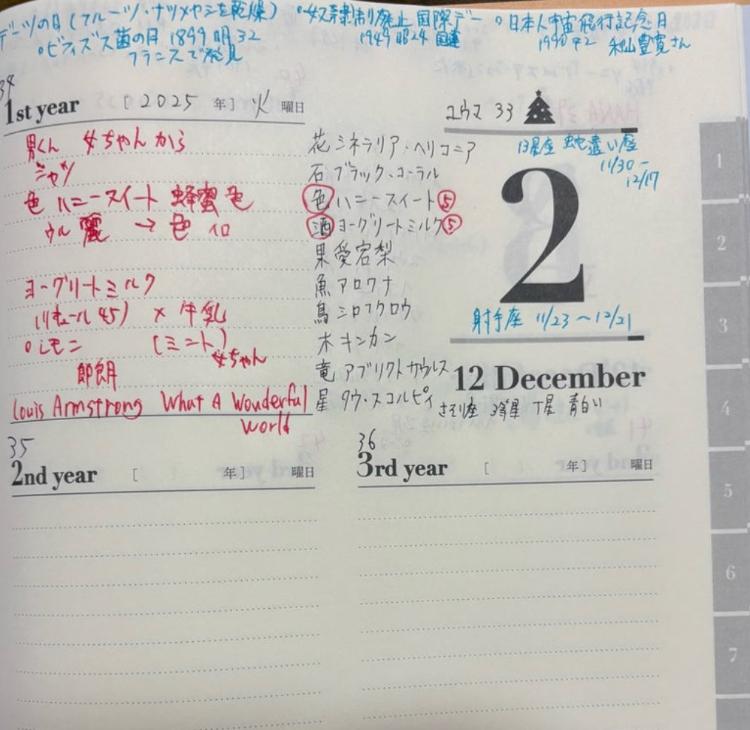 デーツの日(フルーツ・ナツメヤシを乾燥) ○奴隷制廃止国際デー ○日本人宇宙飛行記念日
○ビフィズス菌の日 1899 明32 1949 昭24 国連 1990 H2 秋山豊寛さん
フランスで発見
34
1st year [2025 年] 火 曜日
男くん 女ちゃんから
シャツ
色 ハニースイート 蜂蜜色
麗 → 色
ヨーグリートミルク
(リキュール45) × 牛乳
○レモン [ミント]
女ちゃん
郎朗
Louis Armstrong What A Wonderful
World
花 シネラリア・ヘリコニア
石 ブラック・コーラル
色 ハニースイート⑤
酒 ヨーグリートミルク⑤
果 愛宕梨
魚 アロワナ
鳥 シロフクロウ
木 キンカン
竜 アブリクトサウルス
星 タウ・スコルピィ
さそり座 3等星 丁星 青白い
ユウマ 33
13星座 蛇遣い座
11/30-
12/17
2
射手座 11/23〜12/21
12 December
35
2nd year [ 年] 曜日
36
3rd year [ 年] 曜日
1
2
3
4
5
6
7